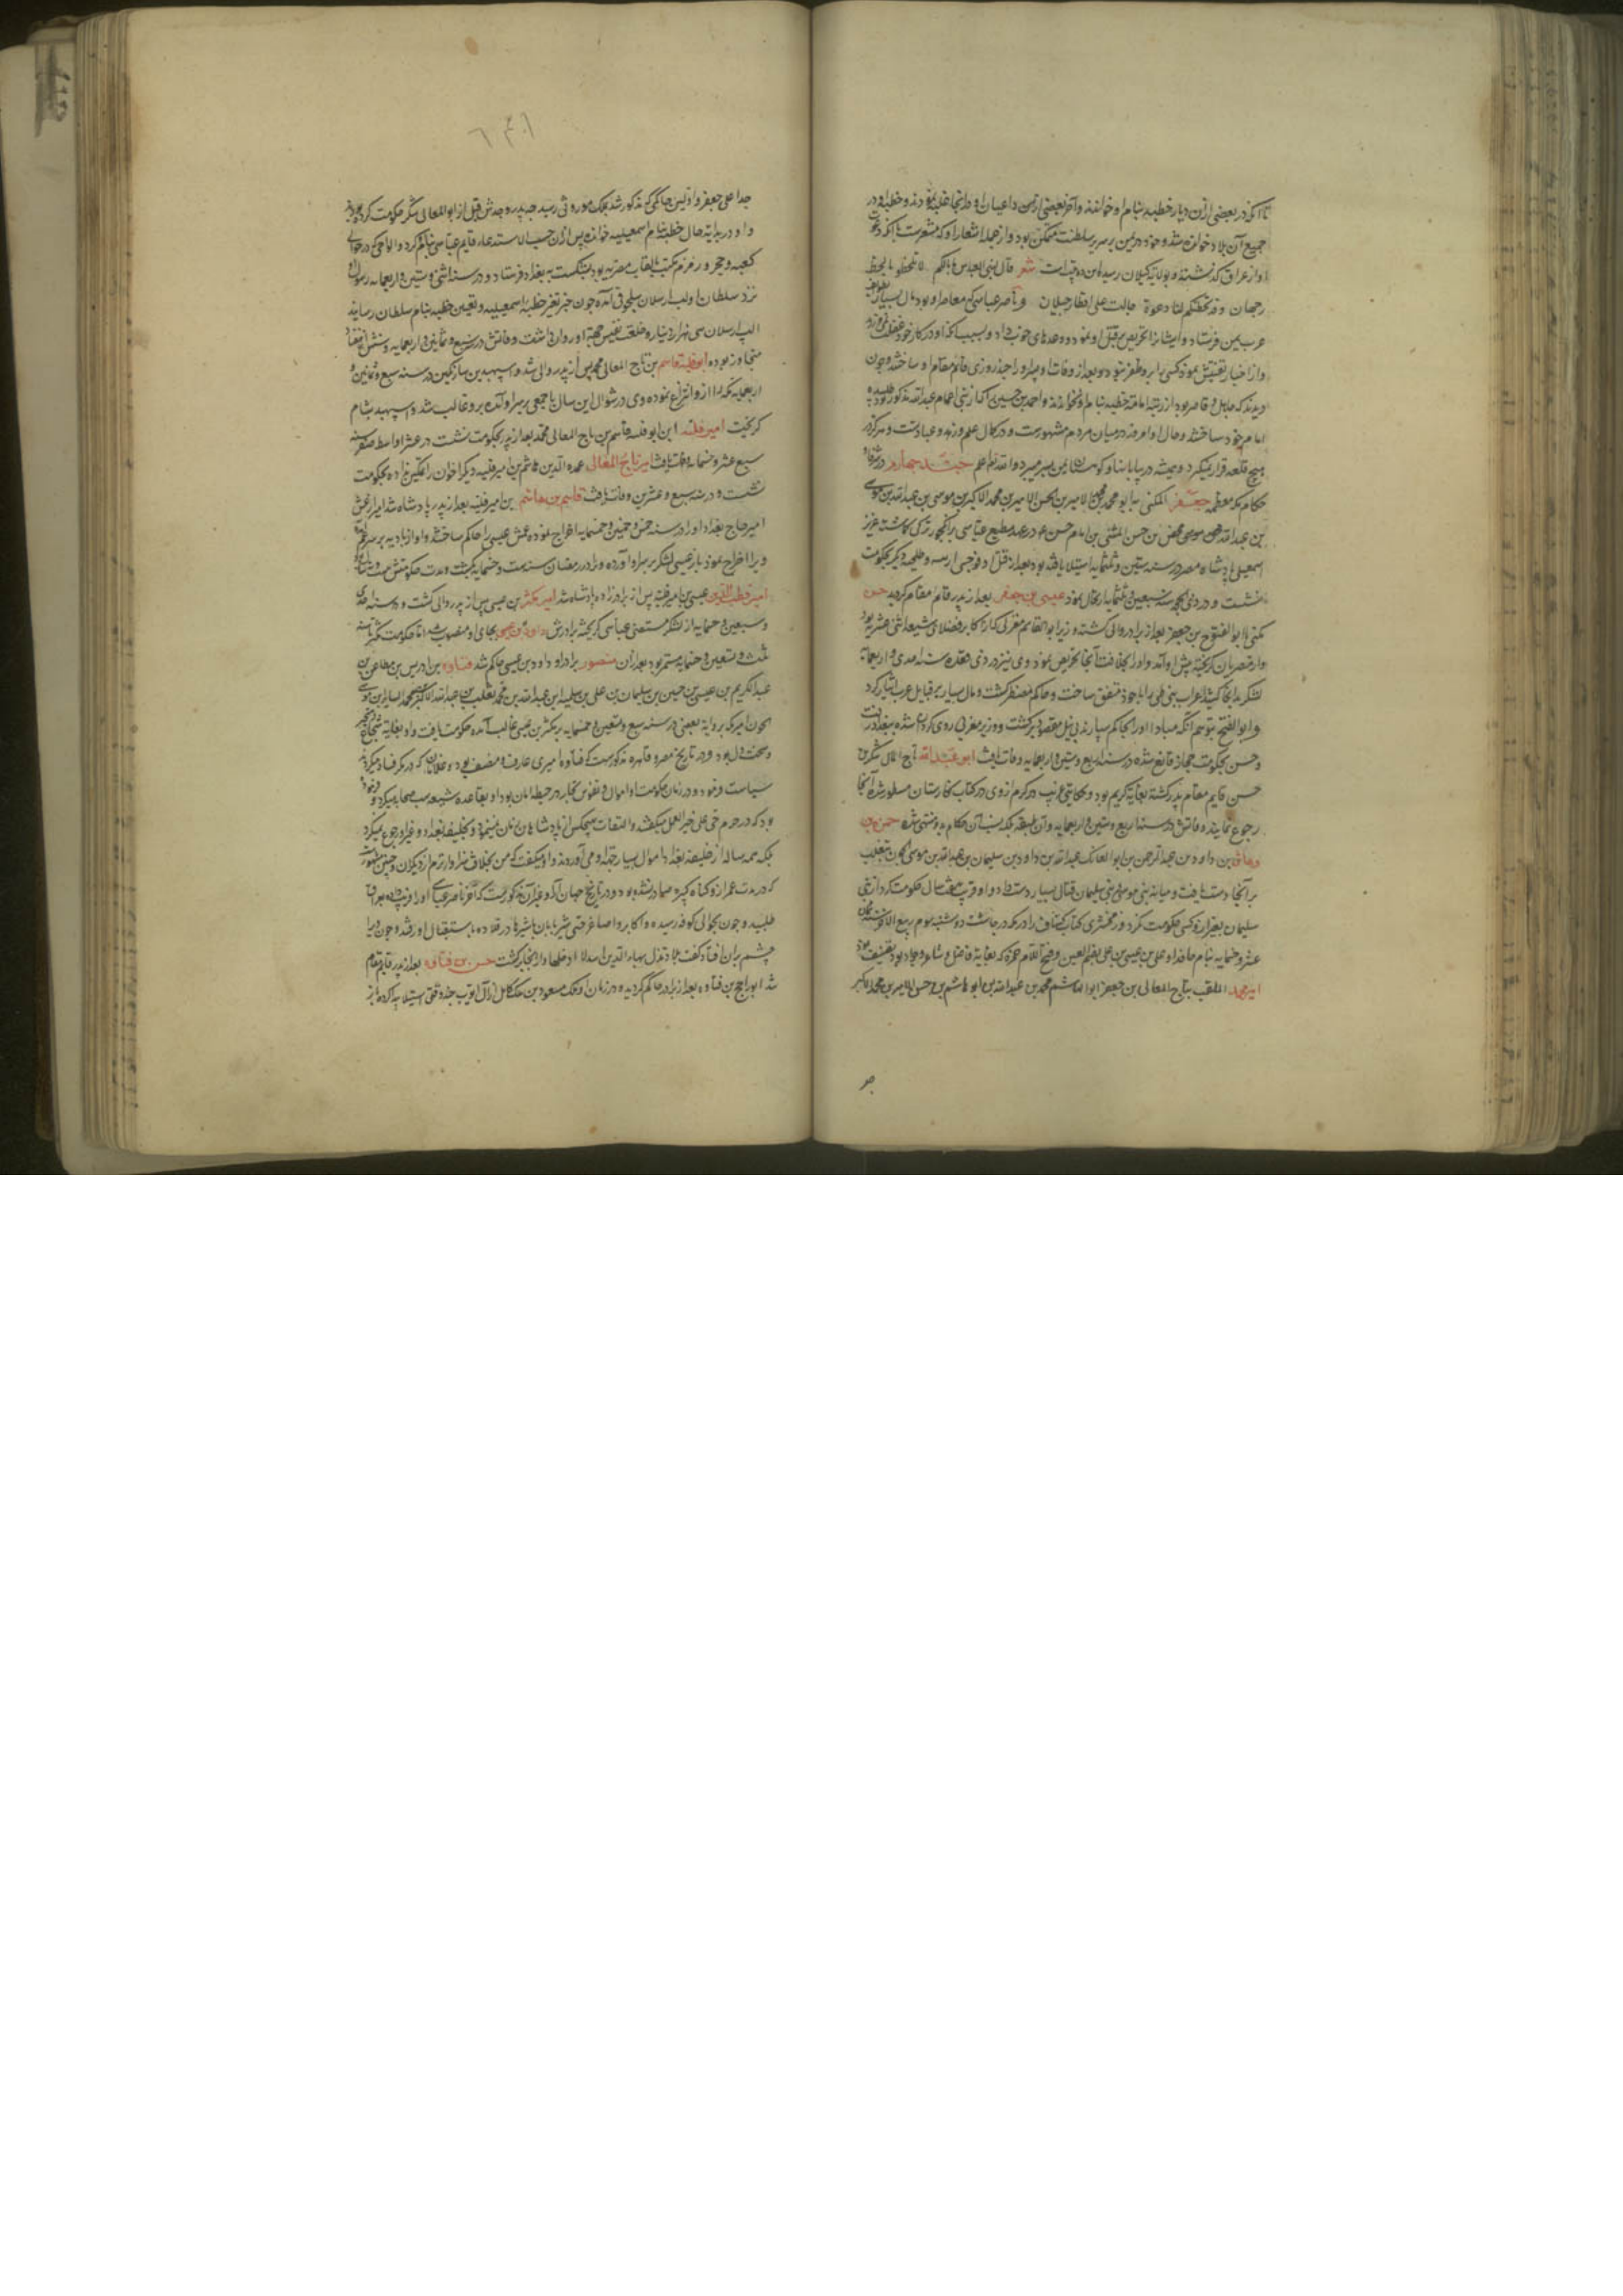 تا آنکه در بعضی ازین دیار خطبه بنام او خواندند و آخر بعضی از یمن داعیان او در آنجا غلبه نمودند و خطبه او در
جمیع آن بلاد خوانده شد و خود در یمن بر سریر سلطنت متمکن بود و از جمله اشعار او که مشعرست بانکه دعوت
او از عراق گذشته و بولایة گیلان رسیده این دو بیت است شعر قال بنی العباس ما بالکم لا تلحظو
دعوة جالت علی اقطار جیلان و ناصر عباسی که معاصر او بود مال بسیار
عرب یمن فرستاد و ایشانرا تحریص بر قتل او نمود و وعدهای خوب داد و بسبب آنکه او در کار خود
و از اخبار تفتیش نمود کسی را بر او ظفر نبود و بعد از وفات او پسر او را چند روزی قائم مقام او ساختند و چون
دیدند که جاهل و قاصر بود از رتبه امامة خطبه بنام او نخواندند و احمد بن حسین را که از بنی اعمام عبدالله مذکور بود
امام خود ساختند و حال او امروز در میان مردم مشهورست و در کمال علم و زهد و عبادتست و هرگز در
هیچ قلعه قرار نمیگیرد و همیشه در بیابانها و کوهستان یمن بسر میبرد والله تعالی اعلم جنبد چهارم در ذکر
حکام مکه معظمه جعفر المکنی به ابو محمد بن الامیر بن الحسن الامیر بن محمد الاکبر بن موسی بن عبدالله بن موسی
بن عبدالله محض بن حسن المثنی بن امام حسن ع در عهد مطیع عباسی بر انکجور ترکی که گماشته عزیز
اسمعیلی پادشاه مصر در سنه ستین و ثلثمایه استیلا یافته بود بعد از قتل او
نشست و در ذی الحجه سنه سبعین و ثلثمایه ارتحال نمود عیسی بن جعفر بعد از پدر قائم مقام گردید حسن
مکنی با ابوالفتوح بن جعفر بعد از برادر والی گشته و وزیر ابوالقاسم مغربی که از اکابر فضلای شیعه اثنی عشریه بود
و از مصریان گریخته پیش او آمد و او را بخلافت آنجا تحریص نمود و وی نیز در ذی قعده سنه احدی و اربعمایه
لشکر بدانجا کشید اعراب بنی طی را با خود متفق ساخت و حاکم مضطر گشت و مال بسیار بر قبایل عرب ایثار کرد
و ابوالفتح بتوهم آنکه مبادا او را بحاکم سپارند بی نیل مقصود برگشت و وزیر مغربی روی گردان شده ببغداد رفت
و حسن بحکومت حجاز قانع شده در سنه اربع و ستین و اربعمایه وفات یافت ابو عبدالله تاج المعالی شکر بن
حسن قایم مقام پدر گشته بغایة کریم بود و حکایتی غریب در کرم از وی در کتاب نگارستان مسطور شده آنجا
رجوع نمایند وفاتش در سنه اربع و ستین و اربعمایه و آن طبقه بلکه نسب آن حکام بدو منتهی شده حمزه بن
وهاس بن داود بن عبدالرحمن بن ابو الفاتک عبدالله بن داود بن سلیمان بن عبدالله بن موسی الجون بتغلب
بر آنجا دست یافت و میانه بنی موسی و بنی سلیمان قتال بسیار دست داد و او قرب هفت سال حکومت کرد از بنی
سلیمان بغیر از و کسی حکومت نکرد و زمخشری کتاب کشاف را در مکه در چاشت دوشنبه سیوم ربیع الآخر سنه ثمان
عشر و خمسمایه بنام حافد او علی بن عیسی بن علی بضم العین و فتح اللام حمزه که بغایة فاضل و شاعر و جواد بود تصنیف نمود
امیر محمد الملقب بتاج المعالی بن جعفر ابوالهاشم محمد بن عبدالله بن ابو هاشم بن حسن الامیر بن محمد الاکبر
جد اعلی جعفر و اولین حاکمی که مذکور شد بملک موروثی رسید چه پدر و جدش قبل از ابوالمعالی شکر حکومت کرده بودند
و او در بدایة حال خطبه بنام اسمعیلیه خوانده پس از آن حسب الاستدعاء قایم عباسی بنام او کرد و الواحی که در حوالی
کعبه و حجر و زمزم مکتوب بالقاب مصریه بود بشکست و ببغداد فرستاد و در سنه اثنی و ستین و اربعمایه رسول او
نزد سلطان الپ ارسلان سلجوقی آمده چون خبر تغیر خطبه اسمعیلیه و تعیین خطبه بنام سلطان رسانید
الپ ارسلان سی هزار دینار و خلعت نفیس جهة او روان داشت و وفاتش در سبع و ثمانین و اربعمایه و سنش از هفتاد
متجاوز بوده ابو فلیته قاسم بن تاج المعالی محمد پس از پدر والی شد و اسپهبد بن سارتکین در سنه سبع و ثمانین و
اربعمایه مکه را از و انتزاع نموده وی در شوال این سال با جمعی بر سر او آمده بر و غالب شد و اسپهبد بشام
گریخت امیر فلیته ابن ابو فلیته قاسم بن تاج المعالی محمد بعد از پدر بحکومت نشست در عشر اواسط صفر سنه
سبع عشر و خمسمایه وفات یافت امیر تاج المعالی عمدة الدین هاشم بن امیر فلیته دیگر اخوان را تمکین نداده بحکومت
نشست و در سنه سبع و عشرین وفات یافت قاسم بن هاشم بن امیر فلیته بعد از پدر پادشاه شد امیر ارغش
امیر حاج بغداد او را در سنه خمس و خمسین و خمسمایه اخراج نموده عمش عیسی را حاکم ساختند و او از بادیه بر سر عم آمده
ویرا اخراج نمود باز عیسی لشکر بر سر او آورده ویرا در رمضان سنه ست و خمسمایه بکشت و مدت حکومتش
امیر قطب الدین عیسی بن امیر فلیته پس از برادرزاده پادشاه شد امیر مکثر بن عیسی پس از پدر والی گشت و در سنه احدی
و سبعین و خمسمایه از لشکر مستضی عباسی گریخته برادرش داود بن عیسی بجای او منصوب شد اما حکومت مکثر تا سنه
ثلث و تسعین و خمسمایه مستمر بود بعد از آن منصور برادر او داود بن عیسی حاکم شد قتاده بن ادریس بن مطاعن بن
عبدالکریم بن عیسی بن حسین بن سلیمان بن علی بن سلیمه ابن عبدالله بن محمد ثعلب بن عبدالله الاکبر بن محمد السایر بن موسی
الجون امیر مکه بروایة بعضی در سنه سبع و تسعین و خمسمایه بر مکثر بن عیسی غالب آمده حکومت یافت و او بغایة شجاع
و سخت دل بود و در تاریخ مصر و قاهره مذکورست که قتاده امیری عارف و منصف بوده و غلامان که در مکه فساد میکردند
سیاست فرمود و در زمان حکومت او اموال و نفوس تجار در حیطه امان بود او بقاعده شیعه سب صحابه میکرد و فرمود
بود که در حرم حی علی خیر العمل میگفتند و التفات بهیچکس از پادشاهان زمان نمینمود و بخلیفه بغداد و غیر او رجوع نمیکرد
بلکه همه ساله از خلیفه بغداد اموال بسیار جهة او می آوردند و او میگفت که من بخلافت سزاوارترم از دیگران و چنین مشهور است
که در مدت عمر از و گناه کبیره صادر نشده بود و در تاریخ جهان آرا و غیر آن مذکورست که آخر ناصر عباسی او را فریب داده بعراق
طلبید و چون بحوالی کوفه رسید و اکابر و اصاغر حتی شیربانان با شیرها در قلاده باستقبال او رفتند و چون ویرا
چشم بر آن افتاد گفت بلاد تذل بها الاسد لا ادخلها و از آنجا برگشت حسن بن قتاده بعد از پدر قایم مقام
شد ابو راجح بن قتاده بعد از برادر حاکم گردیده در زمان او ملک مسعود بن ملک کامل از آل ایوب